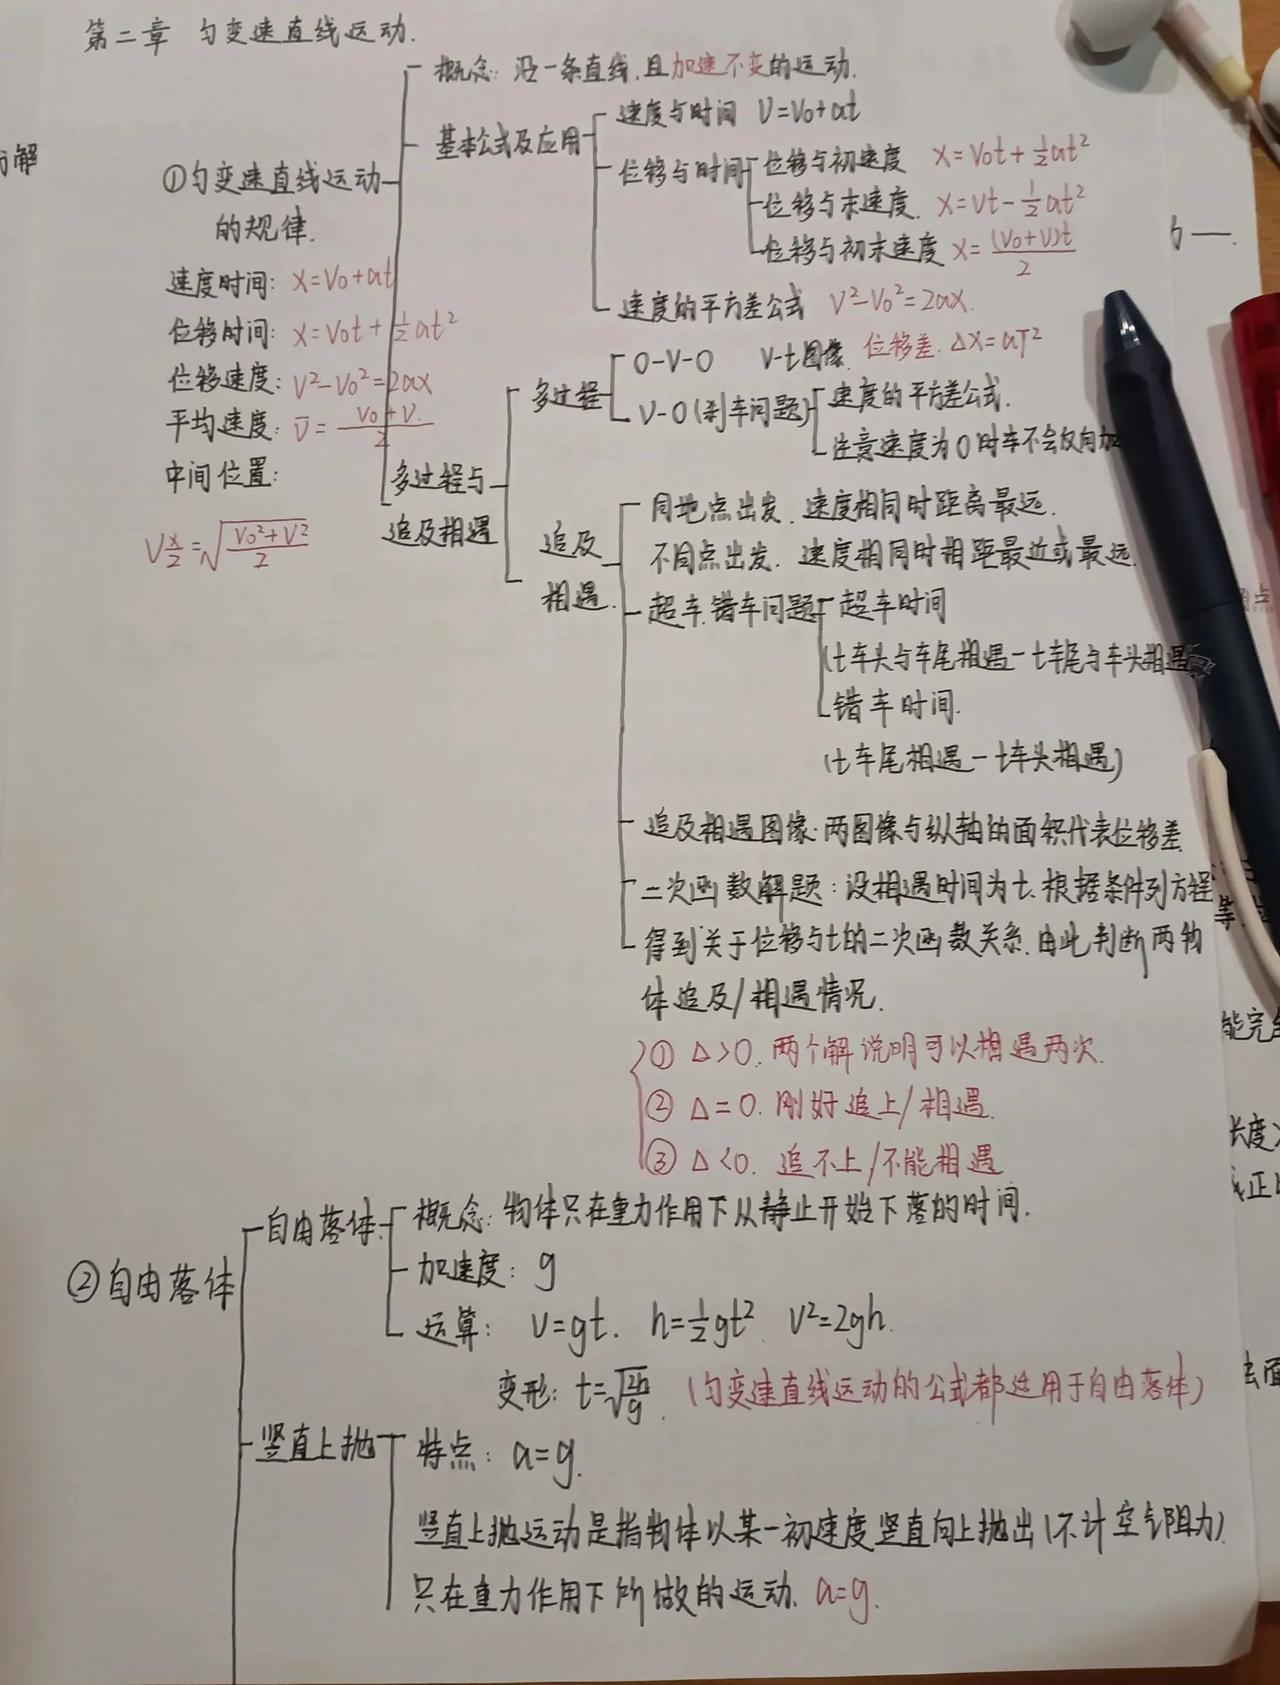 第二章 匀变速直线运动.
概念: 沿一条直线,且加速不变的运动.
基本公式及应用
速度与时间 V=V₀+at
位移与时间
位移与初速度 X=V₀t+½at²
位移与末速度. X=Vt-½at²
位移与初末速度 X=(V₀+V)t/2
速度的平方差公式 V²-V₀²=2ax.
①匀变速直线运动
的规律.
速度时间: X=V₀+at
位移时间: X=V₀t+½at²
位移速度: V²-V₀²=2ax
平均速度: V̄=(V₀+V.)/2
中间位置:
V x/2=√((V₀²+V²)/2)
多过程与
追及相遇
多过程
0-V-0 V-t图像. 位移差. ΔX=aT²
V-0(刹车问题)
速度的平方差公式.
注意速度为0时车不会反向加
追及
相遇.
同地点出发. 速度相同时距离最远.
不同点出发. 速度相同时相距最近或最远.
超车.错车问题
超车时间
(t车头与车尾相遇-t车尾与车头相遇
错车时间.
(t车尾相遇-t车头相遇)
追及相遇图像:两图像与纵轴的面积代表位移差.
二次函数解题:设相遇时间为t.根据条件列方程
得到关于位移与t的二次函数关系.由此判断两物
体追及/相遇情况.
① Δ>0.两个解说明可以相遇两次.
② Δ=0. 刚好追上/相遇.
③ Δ<0. 追不上/不能相遇
②自由落体
自由落体
概念: 物体只在重力作用下从静止开始下落的时间.
加速度: g
运算: V=gt. h=½gt² V²=2gh.
变形: t=√(2h/g). (匀变速直线运动的公式都适用于自由落体)
竖直上抛
特点: a=g.
竖直上抛运动是指物体以某一初速度竖直向上抛出(不计空气阻力).
只在重力作用下所做的运动. a=g.
解
能完全
长度
正
去面